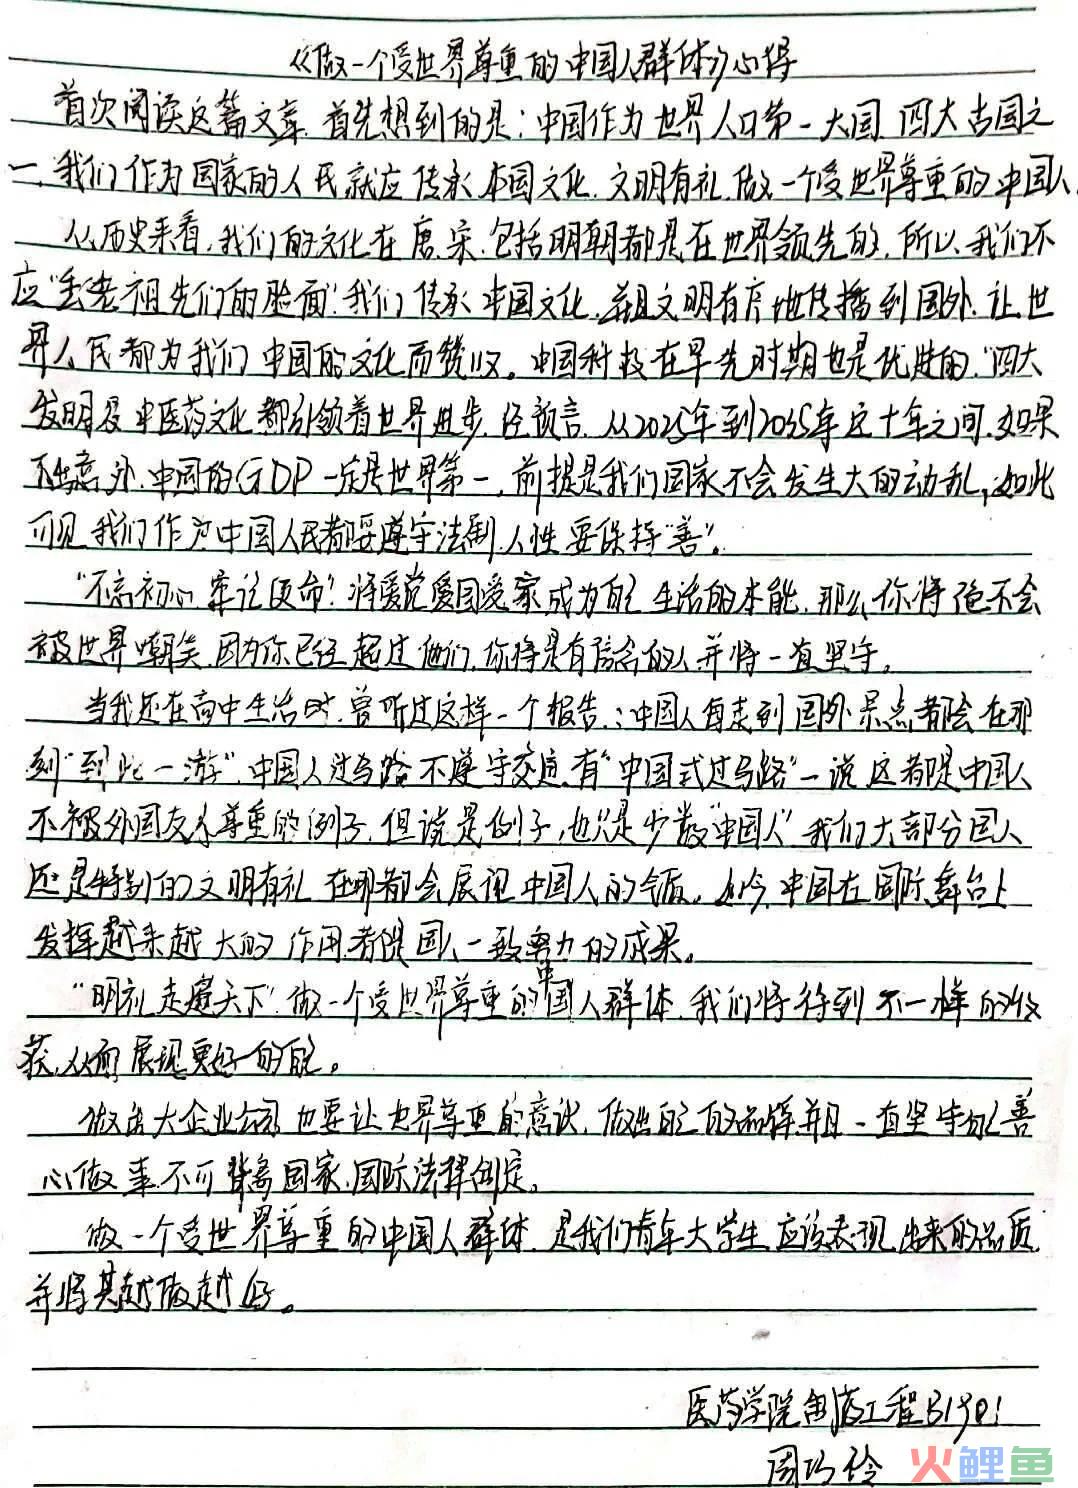 《做一个受世界尊重的中国人群体》心得
首次阅读这篇文章，首先想到的是：中国作为世界人口第一大国，四大古国之
一，我们作为国家的人民就应传承本国文化，文明有礼，做一个受世界尊重的中国人，
从历史来看，我们的文化在唐、宋，包括明朝都是在世界领先的，所以，我们不
应"丢老祖先们的脸面"，我们传承中国文化，并且文明有序地传播到国外，让世
界人民都为我们中国的文化而赞叹。中国科技在早先时期也是优进的，"四大
发明及中医药文化都引领着世界进步，经预言，从2025年到2035年这十年之间，如果
不出意外，中国的GDP一定是世界第一，前提是我们国家不会发生大的动乱，如此
可见，我们作为中国人民都要遵守法制，人性要保持"善"。
"不忘初心，牢记使命！将爱党爱国爱家成为自己生活的本能，那么，你将绝不会
被世界嘲笑，因为你已经超过他们，你将是有信念的人并将一直坚守。
当我还在高中生活时，曾听过这样一个报告：中国人每走到国外景点都会在那
刻"到此一游"，中国人过马路不遵守交通，有"中国式过马路"一说，这都是中国人
不被外国友人尊重的例子，但说是例子，也只是少数"中国人"，我们大部分国人
还是特别的文明有礼，在哪都会展现中国人的气质。如今，中国在国际舞台上
发挥越来越大的作用，都是国人一致努力的成果。
"明礼走遍天下"，做一个受世界尊重的中国人群体，我们将得到不一样的收
获，从而展现更好的自己。
做的大企业公司也要让世界尊重的意识，做出自己的品牌并且一直坚守，以善
心做事，不可背离国家、国际法律制定。
做一个受世界尊重的中国人群体，是我们青年大学生应该表现出来的品质，
并将其越做越好。
医药学院制药工程B1901
周巧伶
火鲤鱼